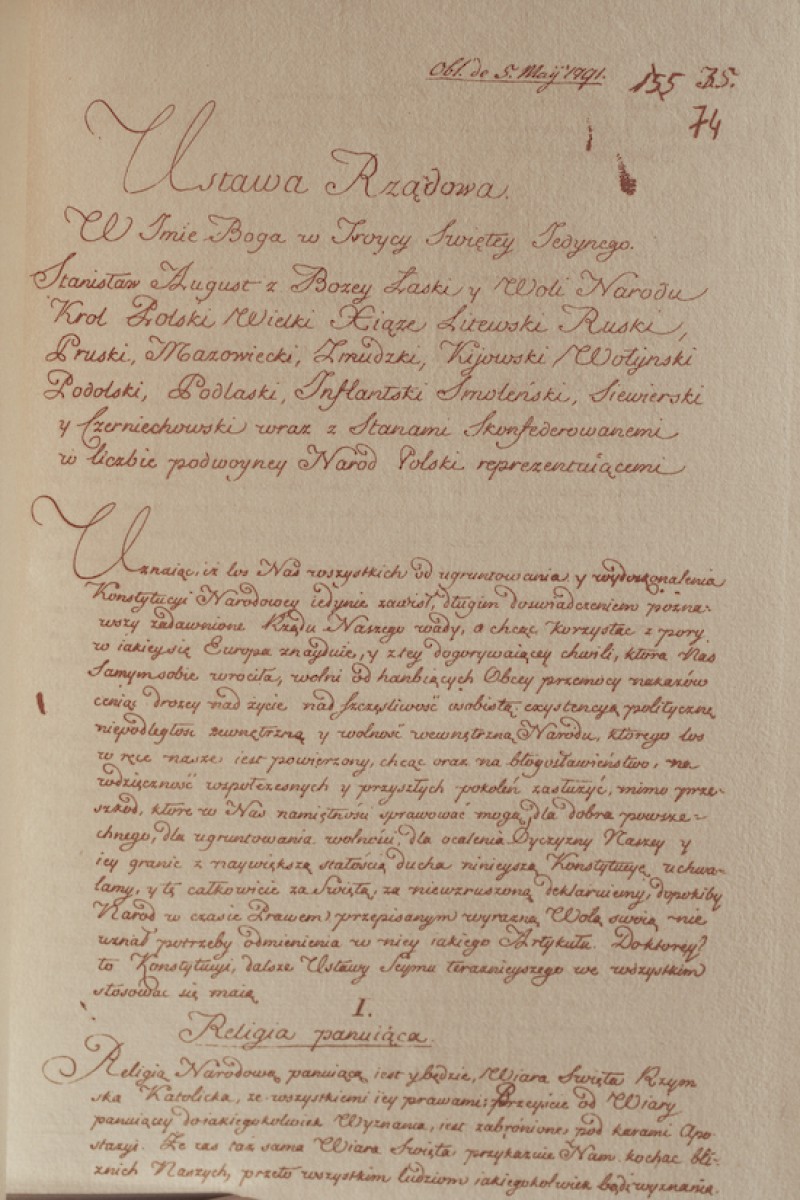 Obl. de 5. Maij 1791.
155 35.
74
Ustawa Rządowa.
W Imie Boga w Troycy Swiętey Jedynego.
Stanisław August z Bozey Łaski y Woli Narodu
Krol Polski Wielki Xiąze Litewski Ruski,
Pruski, Mazowiecki, Zmudzki, Kijowski Wołynski
Podolski, Podlaski, Inflantski Smoleński, Siewierski
y Czerniechowski wraz z Stanami Skonfederowanemi
w liczbie podwoyney Narod Polski reprezentuiącemi
Uznaiąc, iż los Nas wszystkich od ugruntowania y wydoskonalenia
Konstytucyi Narodowey iedynie zawisł, długim doswiadczeniem pozna-
wszy zadawnione Rządu Naszego wady, a chcąc korzystac z pory
w iakiey się Europa znayduie, y z tey dogorywaiącey chwili, ktora Nas
Samym sobie wrociła, wolni od hanbiących Obcey przemocy nakazów
ceniąc drozey nad życie nad szczęsliwość osobistą exystencyą polityczną
niepodległość zewnętrzną y wolność wewnętrzną Narodu, ktorego los
w ręce nasze iest powierzony, chcąc oraz na błogosławieństwo, na
wdzięczność wspołczesnych y przyszłych pokoleń zasłużyć, mimo prze-
szkod, ktore w Nas namiętności sprawować mogą, dla dobra powsze-
chnego, dla ugruntowania wolności, dla ocalenia Oyczyzny Naszey y
iey granic z naywiększą stałością ducha ninieyszą Konstytucyę uchwa-
lamy, y tę całkowicie za Swiętą, za niewzruszoną deklaruiemy, dopokiby
Narod w czasie Prawem przepisanym wyrazną Wolą swoią nie
uznał potrzeby odmienienia w niey iakiego Artykułu. Do ktorey?
to Konstytucyi, dalsze Ustawy Seymu teraznieyszego we wszystkim
stosować się maią
I.
Religia panuiąca.
Religią Narodową panuiącą iest y będzie, Wiara Swięta Rzym
ska Katolicka, ze wszystkiemi iey prawami; Przeyscie od Wiary
panuiącey do iakiegokolwiek Wyznania, iest zabronione pod karami Apo-
stazyi. Ze zas taż sama Wiara Swięta przykazuie Nam kochac bli-
znich Naszych, przeto wszystkim ludziom iakiegokolwiek bądź wyznania